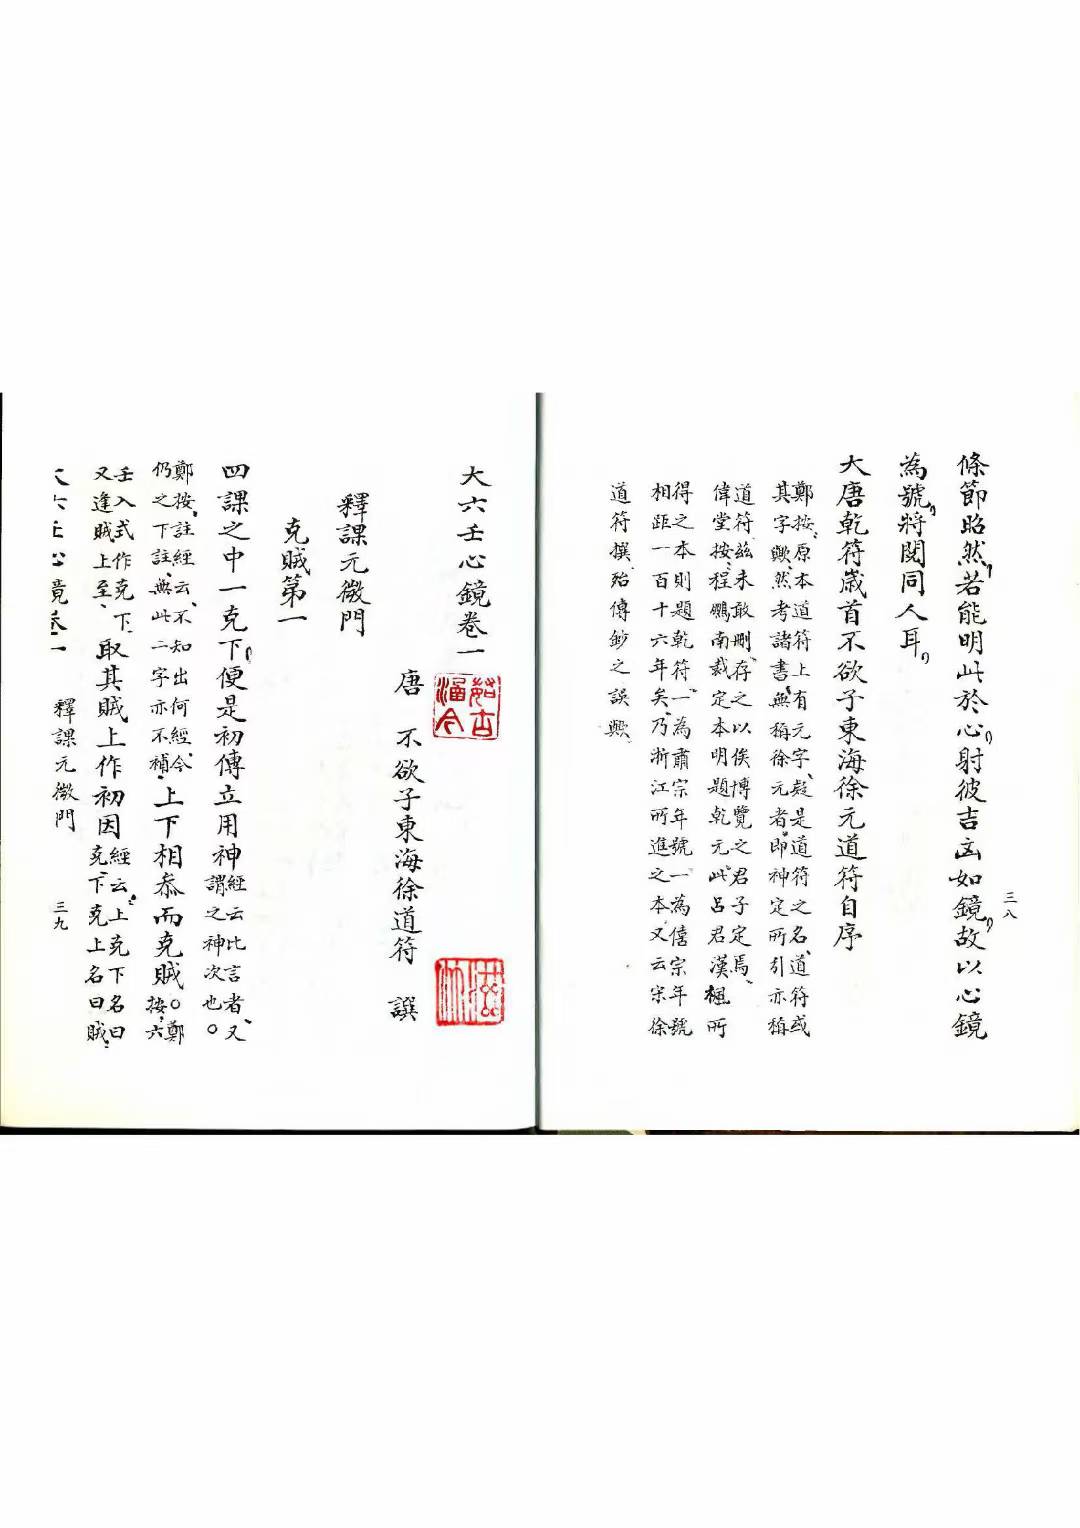 三八
條節昭然若能明此於心射彼吉凶如鏡故以心鏡
為號將閱同人耳
大唐乾符歲首不欲子東海徐元道符自序
鄭按原本道符上有元字疑是道符之名道符或
其字歟然考諸書無稱徐元者即神定所引亦稱
道符茲未敢刪存之以俟博覽之君子定焉
偉堂按程鵬南裁定本明題乾元此呂君漢楓所
得之本則題乾符一為肅宗年號一為僖宗年號
相距一百十六年矣乃浙江所進之本又云宋徐
道符撰殆傳鈔之誤歟
大六壬心鏡卷一
唐 不欲子東海徐道符 譔
釋課元微門
克賊第一
四課之中一克下便是初傳立用神經云比言者又謂之神次也○
鄭按註經云不知出何經今仍之下註無此二字亦不補上下相叅而克賊○鄭按六
壬入式作克下又逢賊上至取其賊上作初因經云上克下名曰克下克上名曰賊
大六壬心鏡卷一 釋課元微門 三九